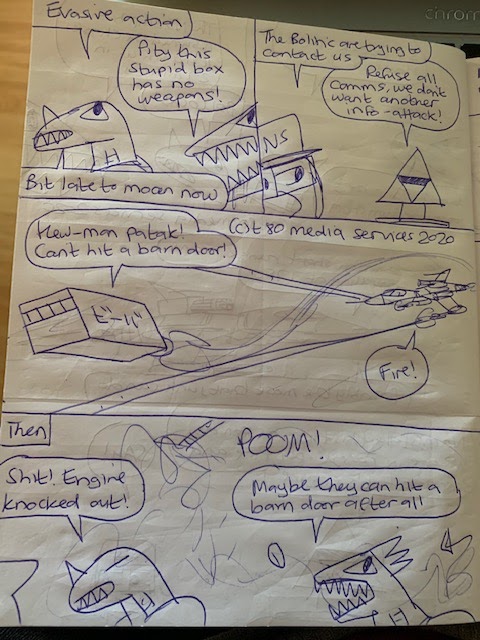 chrom
Evasive action
Pity this
stupid box
has no
weapons!
Bit late to moan now
The Bolinic are trying to
contact us
Refuse all
Comms, we don't
want another
info-attack!
NS
(c)t80 media services 2020
Hew-mon patak!
Can't hit a barn door!
ビーバ
Fire!
Then
POOM!
Shit! Engine
knocked out!
Maybe they can hit a
barn door after all